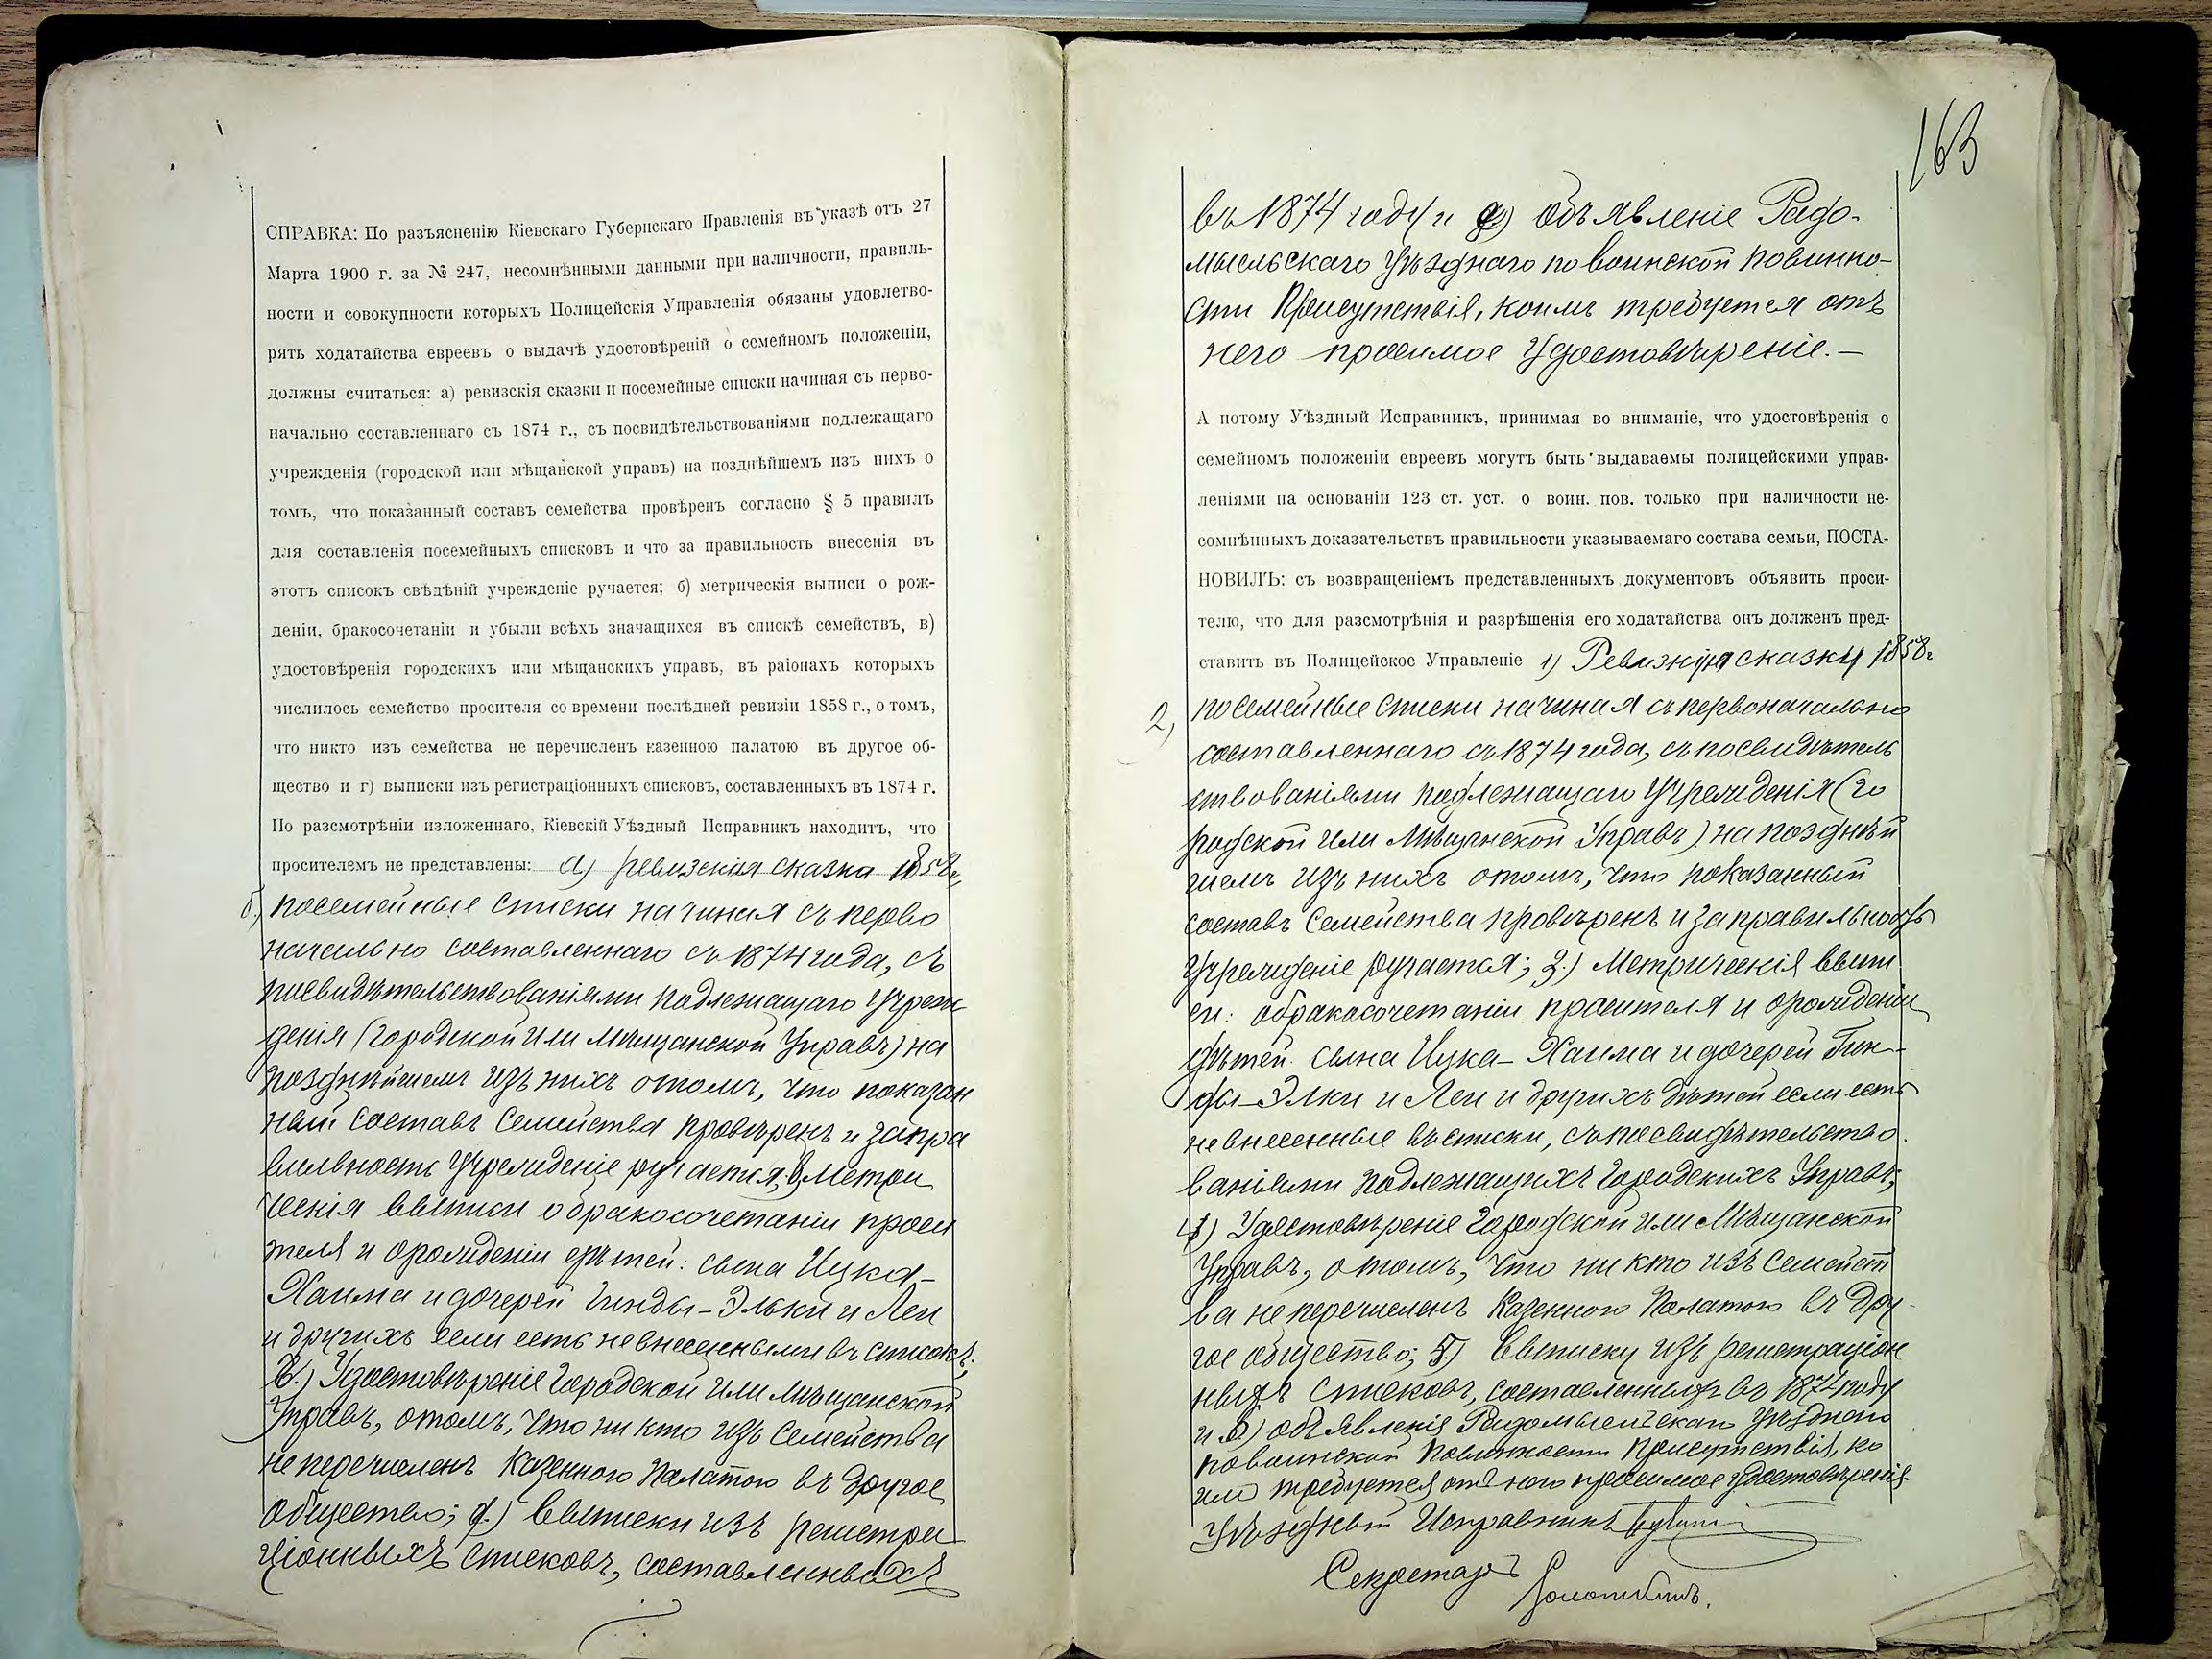 СПРАВКА: По разъясненію Кіевскаго Губернскаго Правленія въ указѣ отъ 27
Марта 1900 г. за № 247, несомнѣнными данными при наличности, правиль-
ности и совокупности которыхъ Полицейскія Управленія обязаны удовлетво-
рять ходатайства евреевъ о выдачѣ удостовѣреній о семейномъ положеніи,
должны считаться: а) ревизскія сказки и посемейные списки начиная съ перво-
начально составленнаго съ 1874 г., съ посвидѣтельствованіями подлежащаго
учрежденія (городской или мѣщанской управъ) на позднѣйшемъ изъ нихъ о
томъ, что показанный составъ семейства провѣренъ согласно § 5 правилъ
для составленія посемейныхъ списковъ и что за правильность внесенія въ
этотъ списокъ свѣдѣній учрежденіе ручается; б) метрическія выписи о рож-
деніи, бракосочетаніи и убыли всѣхъ значащихся въ спискѣ семействъ, в)
удостовѣренія городскихъ или мѣщанскихъ управъ, въ раіонахъ которыхъ
числилось семейство просителя со времени послѣдней ревизіи 1858 г., о томъ,
что никто изъ семейства не перечисленъ казенною палатою въ другое об-
щество и г) выписки изъ регистраціонныхъ списковъ, составленныхъ въ 1874 г.
По разсмотрѣніи изложеннаго, Кіевскій Уѣздный Исправникъ находитъ, что
просителемъ не представлены: а) ревизская сказка 1858 г,
б, посемейные списки начиная съ перво
начально составленнаго съ 1874 года, съ
посвидѣтельствованіями подлежащаго Учреж
денія (городской или Мѣщанской Управъ) на
позднѣйшемъ изъ нихъ о томъ, что показан
ный составъ Семейства провѣренъ и за пра
вильность Учрежденіе ручается, в, Метри
ческія выписи о бракосочетаніи проси
теля и о рожденіи дѣтей: сына Ицка-
Хаима и дочерей Гинды-Эльки и Леи
и другихъ если есть не внесенными въ списокъ;
Удостовѣреніе Городской или мѣщанской
Управъ, о томъ, что никто изъ Семейства
не перечисленъ Казенною Палатою въ другое
общество; д.) Выписки изъ регистра
ціонныхъ списковъ, составленныхъ
163
въ 1874 году и объявленіе Радо-
мысльскаго Уѣзднаго по воинской повинно-
сти Присутствія, коимъ требуется отъ
него просимое Удостовѣреніе. —
А потому Уѣздный Исправникъ, принимая во вниманіе, что удостовѣренія о
семейномъ положеніи евреевъ могутъ быть выдаваемы полицейскими управ-
леніями на основаніи 123 ст. уст. о воин. пов. только при наличности не-
сомнѣнныхъ доказательствъ правильности указываемаго состава семьи, ПОСТА-
НОВИЛЪ: съ возвращеніемъ представленныхъ документовъ объявить проси-
телю, что для разсмотрѣнія и разрѣшенія его ходатайства онъ долженъ пред-
ставить въ Полицейское Управленіе 1) Ревизкую сказку 1858 г
2, посемейные списки начиная съ первоначально
составленнаго съ 1874 года, съ посвидѣтель
ствованіями подлежащаго Учрежденія (го
родской или Мѣщанской Управъ) на позднѣй
шемъ изъ нихъ о томъ, что показанный
составъ Семейства провѣренъ и за правильность
Учрежденіе ручается; 3.) Метрическія выпи
си: о бракосочетаніи просителя и о рожденіи
дѣтей сына Ицка-Хаима и дочерей Гин-
ды-Элки и Леи и другихъ дѣтей если есть
не внесенные въ списки, съ посвидѣтельство
ваніями подлежащихъ Городскихъ Управъ;
4) Удостовѣреніе Городской или Мѣщанской
Управъ, о томъ, что никто изъ Семейст
ва не перечисленъ Казенною Палатою въ дру
гое общество; 5.) Выписку изъ регистраціон
ныхъ списковъ, составленныхъ въ 1874 году
и 6.) объявленія Радомысльскаго Уѣзднаго
по воинской Повинности Присутствія, ко
имъ требуется отъ него просимое удостовѣреніе.
Уѣздный Исправникъ
Секретарь